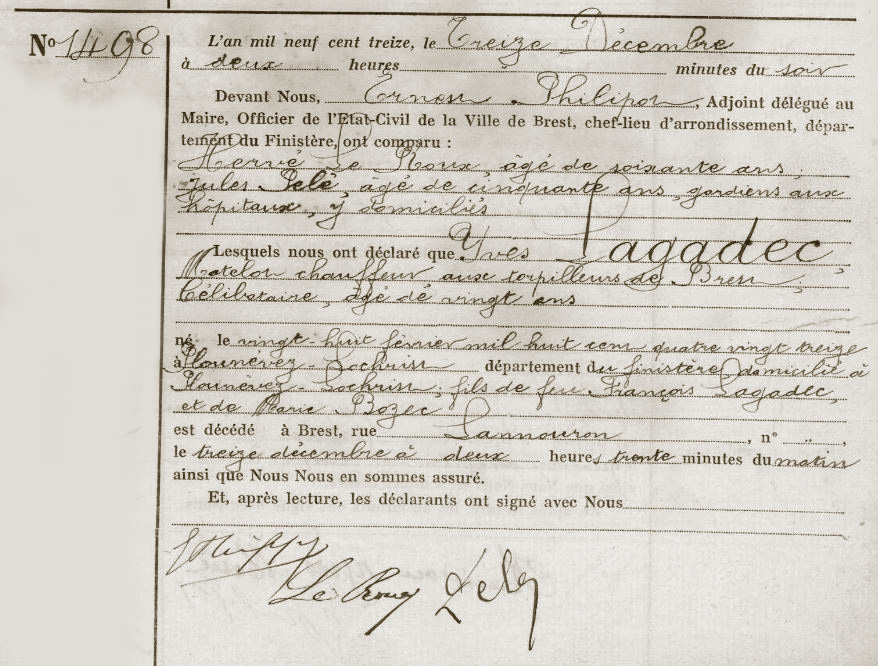 N° 1498
L'an mil neuf cent treize, le Treize Décembre
à deux heures minutes du soir
Devant Nous, Ernest Philipot, Adjoint délégué au
Maire, Officier de l'Etat-Civil de la Ville de Brest, chef-lieu d'arrondissement, dépar-
tement du Finistère, ont comparu :
Hervé Le Roux âgé de soixante ans,
Jules Pelé, âgé de cinquante ans, gardiens aux
hôpitaux, y domiciliés
Lesquels nous ont déclaré que Yves Lagadec,
Matelot chauffeur aux torpilleurs de Brest,
Célibataire, âgé de vingt ans
né le vingt-huit février mil huit cent quatre vingt treize
à Plounévez-Lochrist département du finistère, domicilié à
Plounévez-Lochrist, fils de feu François Lagadec,
et de Marie Bozec
est décédé à Brest, rue Lannouron, n° „ ,
le treize décembre à deux heures trente minutes du matin
ainsi que Nous Nous en sommes assuré.
Et, après lecture, les déclarants ont signé avec Nous
Le Roux Pelé